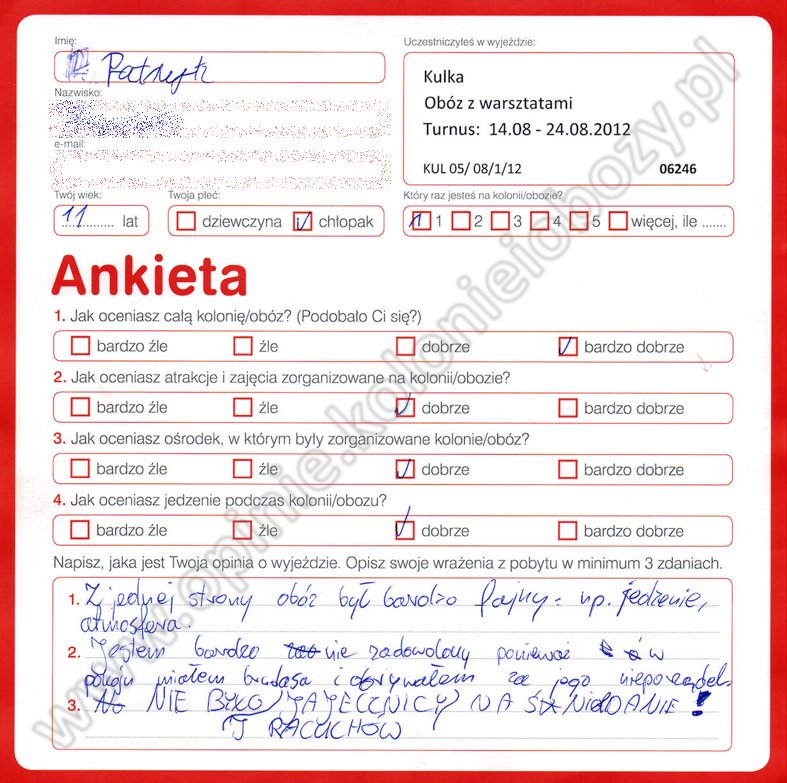 Imię:
Uczestniczyłeś w wyjeździe:
Patryk
Kulka
Obóz z warsztatami
Turnus: 14.08 - 24.08.2012
KUL 05/ 08/1/12 06246
Nazwisko:
e-mail:
Twój wiek: Twoja płeć: Który raz jesteś na kolonii/obozie?
11 lat dziewczyna chłopak 1 2 3 4 5 więcej, ile .......
Ankieta
1. Jak oceniasz całą kolonię/obóz? (Podobało Ci się?)
bardzo źle źle dobrze bardzo dobrze
2. Jak oceniasz atrakcje i zajęcia zorganizowane na kolonii/obozie?
bardzo źle źle dobrze bardzo dobrze
3. Jak oceniasz ośrodek, w którym były zorganizowane kolonie/obóz?
bardzo źle źle dobrze bardzo dobrze
4. Jak oceniasz jedzenie podczas kolonii/obozu?
bardzo źle źle dobrze bardzo dobrze
Napisz, jaka jest Twoja opinia o wyjeździe. Opisz swoje wrażenia z pobytu w minimum 3 zdaniach.
1. Z jednej strony obóz był bardzo fajny - np. jedzenie,
atmosfera.
2. Jestem bardzo nie zadowolony ponieważ w
pokoju miałem brudasa i obrywałem za jego nieporządek
3. NIE BYŁO JAJECZNICY NA ŚNIADANIE!
I RACUCHÓW
www.opinie.kolonieiobozy.pl